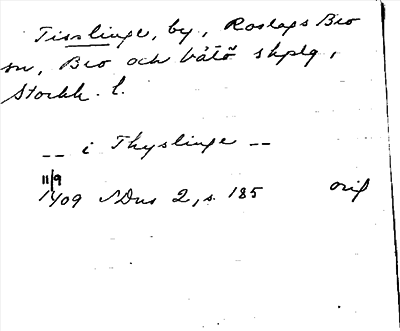 Tisslinge, by, Roslags Bro
sn, Bro och Vätö skplg,
Stockh. l.
-- i Thyslinge --
11/9
1409 SDns 2, s. 185 orig